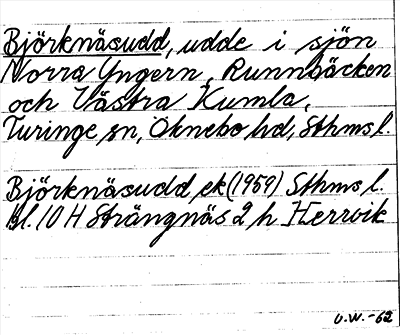 Björknäsudd, udde i sjön
Norra Yngern, Runnbäcken
och Västra Kumla,
Turinge sn, Öknebo hd, Sthms l.
Björknäsudd, ek (1959) Sthms l.
bl. 10 H Strängnäs 2 h Herrvik
U.W.-62